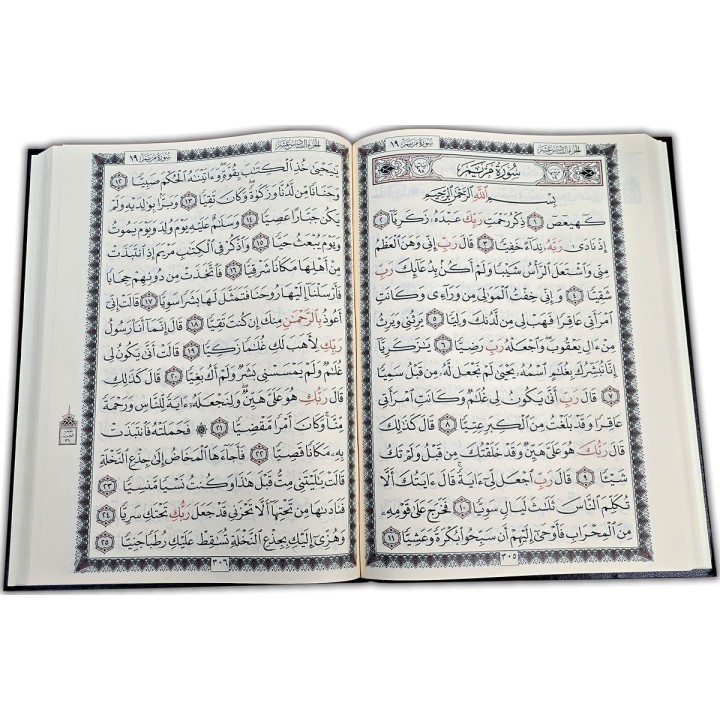 سورة مريم ١٩
الجزء السادس عشر
سورة مريم
بسم الله الرحمن الرحيم
كهيعص ١ ذكر رحمت ربك عبده زكريا ٢
إذ نادى ربه نداء خفيا ٣ قال رب إنى وهن العظم
منى واشتعل الرأس شيبا ولم أكن بدعائك رب
شقيا ٤ وإنى خفت الموالى من وراءى وكانت
امرأتى عاقرا فهب لى من لدنك وليا ٥ يرثنى ويرث
من ءال يعقوب واجعله رب رضيا ٦ يزكريا
إنا نبشرك بغلم اسمه يحيى لم نجعل له من قبل سميا
٧ قال رب أنى يكون لى غلم وكانت امرأتى
عاقرا وقد بلغت من الكبر عتيا ٨ قال كذلك
قال ربك هو على هين وقد خلقتك من قبل ولم تك
شيئا ٩ قال رب اجعل لى ءاية قال ءايتك ألا
تكلم الناس ثلث ليال سويا ١٠ فخرج على قومه
من المحراب فأوحى إليهم أن سبحوا بكرة وعشيا ١١
٣٠٥
سورة مريم ١٩
الجزء السادس عشر
ييحيى خذ الكتب بقوة وءاتينه الحكم صبيا ١٢
وحنانا من لدنا وزكوة وكان تقيا ١٣ وبرا بولديه ولم
يكن جبارا عصيا ١٤ وسلم عليه يوم ولد ويوم يموت
ويوم يبعث حيا ١٥ واذكر فى الكتب مريم إذ انتبذت
من أهلها مكانا شرقيا ١٦ فاتخذت من دونهم حجابا
فأرسلنا إليها روحنا فتمثل لها بشرا سويا ١٧ قالت إنى
أعوذ بالرحمن منك إن كنت تقيا ١٨ قال إنما أنا رسول
ربك لأهب لك غلما زكيا ١٩ قالت أنى يكون لى
غلم ولم يمسسنى بشر ولم أك بغيا ٢٠ قال كذلك
قال ربك هو على هين ولنجعله ءاية للناس ورحمة
منا وكان أمرا مقضيا ٢١ ۞ فحملته فانتبذت
به مكانا قصيا ٢٢ فأجاءها المخاض إلى جذع النخلة
قالت يليتنى مت قبل هذا وكنت نسيا منسيا ٢٣
فنادىها من تحتها ألا تحزنى قد جعل ربك تحتك سريا ٢٤
وهزى إليك بجذع النخلة تسقط عليك رطبا جنيا ٢٥
٣٠٦